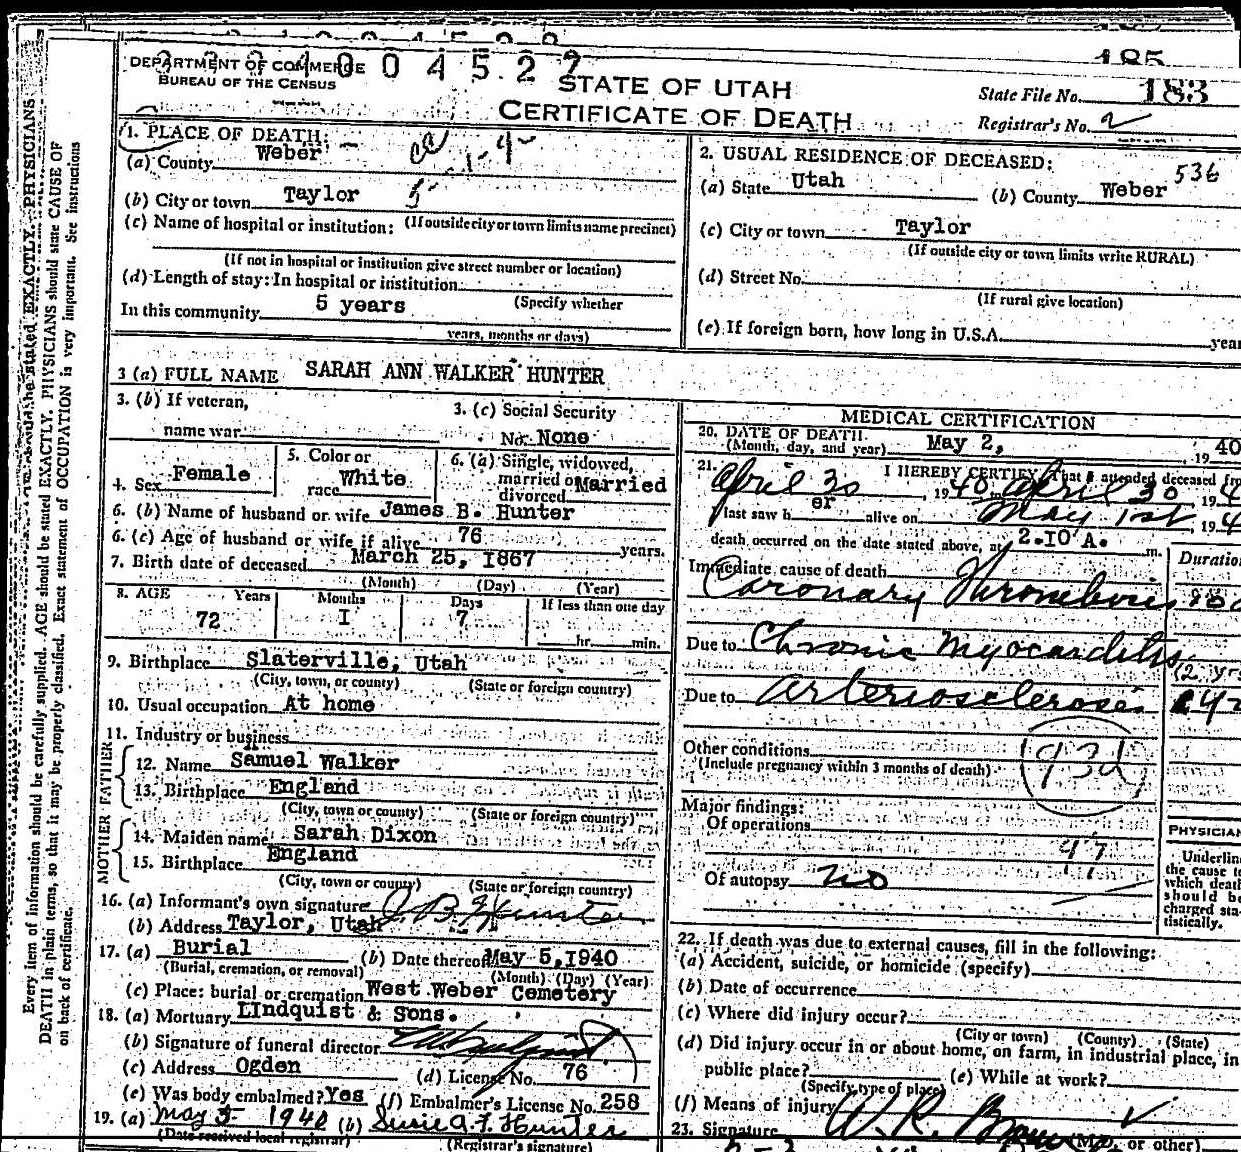 2 2 3 4 0 0 4 5 2 7
185
DEPARTMENT OF COMMERCE
BUREAU OF THE CENSUS
STATE OF UTAH
CERTIFICATE OF DEATH
State File No. 183
Registrar's No. 2
1. PLACE OF DEATH:
(a) County Weber
(b) City or town Taylor
(If outside city or town limits name precinct)
(c) Name of hospital or institution:
(If not in hospital or institution give street number or location)
(d) Length of stay: In hospital or institution
(Specify whether
In this community 5 years
years, months or days)
2. USUAL RESIDENCE OF DECEASED:
536
(a) State Utah (b) County Weber
(c) City or town Taylor
(If outside city or town limits write RURAL)
(d) Street No.
(If rural give location)
(e) If foreign born, how long in U.S.A. year
3 (a) FULL NAME SARAH ANN WALKER HUNTER
3. (b) If veteran,
name war
3. (c) Social Security
No. None
4. Sex Female
5. Color or
race White
6. (a) Single, widowed,
married or
divorced Married
6. (b) Name of husband or wife James B. Hunter
6. (c) Age of husband or wife if alive 76 years.
7. Birth date of deceased March 25, 1867
(Month) (Day) (Year)
8. AGE Years Months Days If less than one day
72 I 7
hr. min.
9. Birthplace Slaterville, Utah
(City, town, or county) (State or foreign country)
10. Usual occupation At home
11. Industry or business
FATHER
12. Name Samuel Walker
13. Birthplace England
(City, town or county) (State or foreign country)
MOTHER
14. Maiden name Sarah Dixon
15. Birthplace England
(City, town or county) (State or foreign country)
16. (a) Informant's own signature J. B. Hunter
(b) Address Taylor, Utah
17. (a) Burial (b) Date thereof May 5, 1940
(Burial, cremation, or removal) (Month) (Day) (Year)
(c) Place: burial or cremation West Weber Cemetery
18. (a) Mortuary LIndquist & Sons.
(b) Signature of funeral director
(c) Address Ogden (d) License No. 76
(e) Was body embalmed? Yes (f) Embalmer's License No. 258
19. (a) May 5 1940 (b) Susie A. F. Hunter
(Date received local registrar) (Registrar's signature)
MEDICAL CERTIFICATION
20. DATE OF DEATH
(Month, day, and year) May 2, 1940
21. I HEREBY CERTIFY, That I attended deceased fr
April 30 1940 April 30 194
last saw her alive on May 1st 194
death occurred on the date stated above, at 2.10 A. m.
Duration
Immediate cause of death
Coronary Thrombosis
Due to Chronic Myocarditis
Due to arteriosclerosis
Other conditions
(Include pregnancy within 3 months of death)
93d
Major findings:
Of operations
97
Of autopsy no
PHYSICIAN
Underline
the cause to
which death
should be
charged sta-
tistically.
22. If death was due to external causes, fill in the following:
(a) Accident, suicide, or homicide (specify)
(b) Date of occurrence
(c) Where did injury occur?
(City or town) (County) (State)
(d) Did injury occur in or about home, on farm, in industrial place, in
public place?
(Specify type of place) (e) While at work?
(f) Means of injury
23. Signature W. R. Brown (M.D. or other)
Every item of information should be carefully supplied. AGE should be stated EXACTLY. PHYSICIANS should state CAUSE OF
DEATH in plain terms, so that it may be properly classified. Exact statement of OCCUPATION is very important. See instructions
on back of certificate.